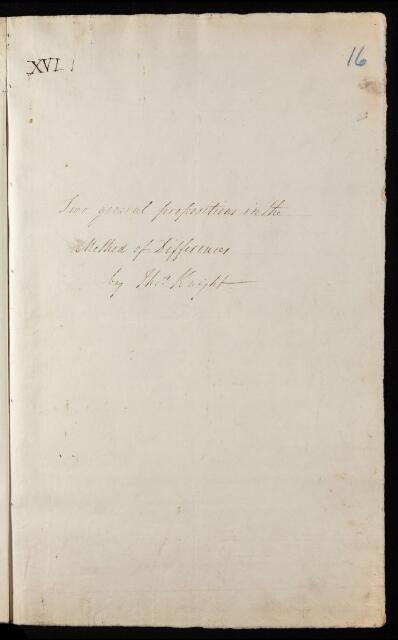 XVI
16
Two general propositions in the
Method of Differences
by Thos. Knight